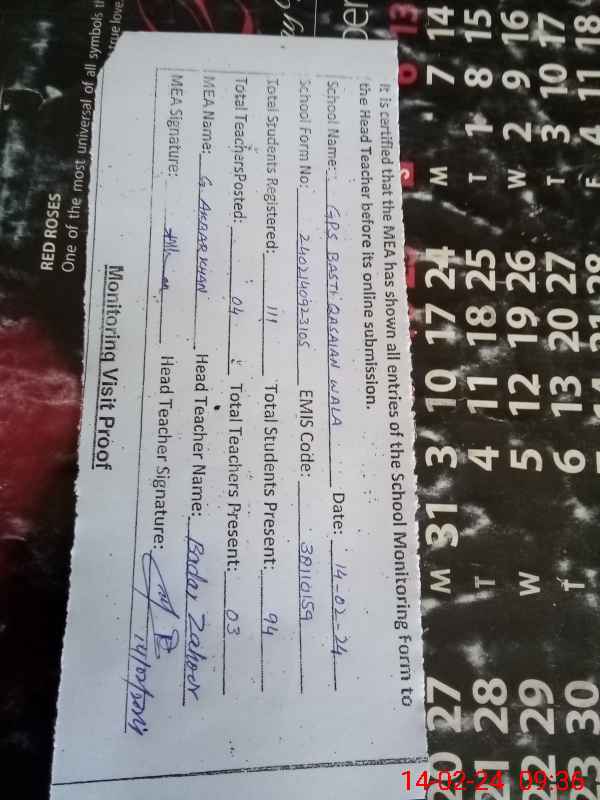 Monitoring Visit Proof
It is certified that the MEA has shown all entries of the School Monitoring Form to
the Head Teacher before its online submission.
School Name: GPS BASTI QASAIAN WALA Date: 14-02-24
School Form No: 24021409-23105 EMIS Code: 38110159
Total Students Registered: 111 Total Students Present: 94
Total TeachersPosted: 04 Total Teachers Present: 03
MEA Name: G AKBAR KHAN Head Teacher Name: Badar Zahoor
MEA Signature: Head Teacher Signature:
RED ROSES
One of the most universal of all symbols
W 31 3 10 17 24
T 4 11 18 25
W 5 12 19 26
T 6 13 20 27
W 7 14
T 1 8 15
W 2 9 16
T 3 10 17
F 4 11 18
20 27
21 28
22 29
23 30
14-02-24 09:36